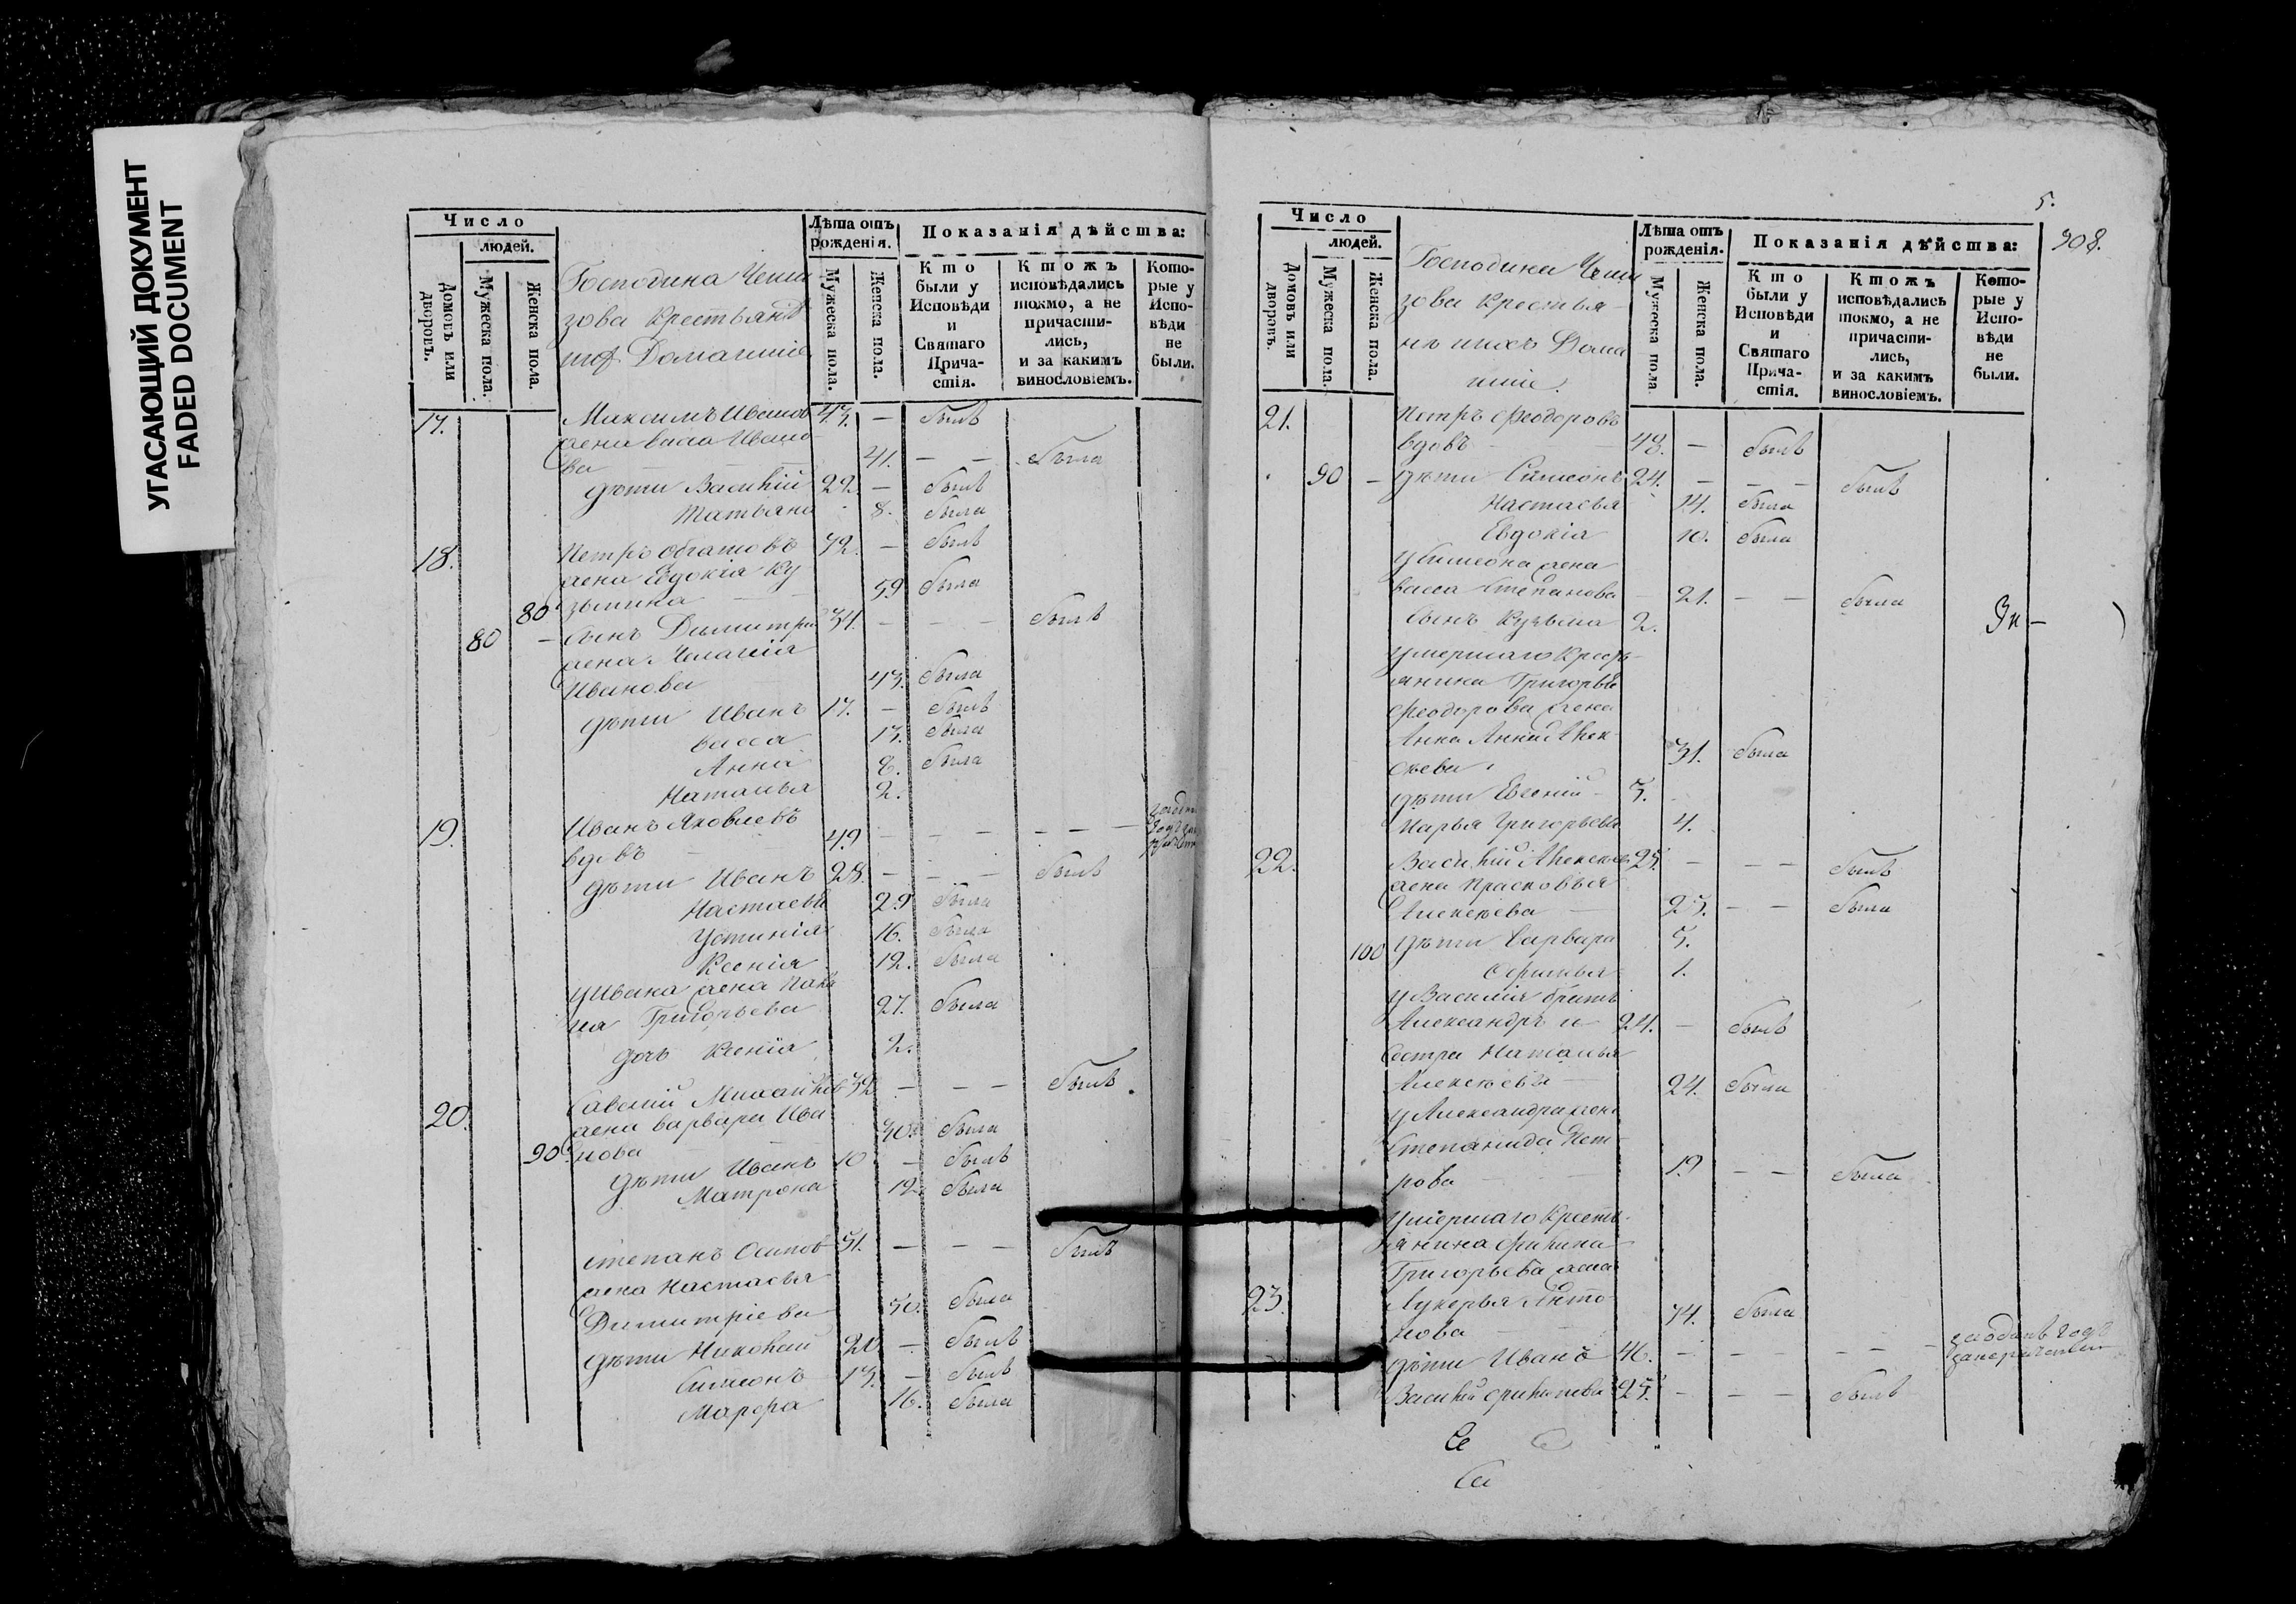 УГАСАЮЩИЙ ДОКУМЕНТ
FADED DOCUMENT
Число
людей.
Домовъ или дворовъ.
Мужеска пола.
Женска пола.
Господина
зова Крестьяне
Домашнiе
Лѣта отъ рожденiя.
Мужеска пола.
Женска пола.
Показанiя дѣйства:
Кто были у Исповѣди и Святаго Прича-стiя.
Ктожъ исповѣдались токмо, а не причасти-лись, и за какимъ винословiемъ.
Кото-рые у Испо-вѣди не были.
17. Максимъ Иванов 43. — былъ
жена васса Ивано-
ва 41. — — была
дѣти Василiй 22. — былъ
Татьяна 8. была
18. Петръ 72. — былъ
жена Евдокiя Ку
80 зьмина — — 59 была
80 — сынъ Димитри 34. — — — былъ
жена Пелагiя
Иванова 43. была
дѣти Иванъ 17. — былъ
васса 13. была
Анна 8. была
Наталья 2.
19. Иванъ Яковлевъ
вдовъ — 49 — — — — — —
дѣти Иванъ 28. — — — былъ
Настасья 29 была
Устинiя 16. была
Ксенiя 12. была
у Ивана жена
Григорьева 27. была
дочь Ксенiя 2.
20. Савелiй Михайлов 32 — — — былъ.
жена варвара Ива
90 нова 30. была
дѣти Иванъ 10 — былъ
Матрона 12. была
степанъ Осипов 51. — — — былъ
жена Настасья
Димитрiева 50. была
дѣти Николай 20 — былъ
Симеонъ 13. — былъ
Марфа 16. была
5.
308.
Число
людей.
Домовъ или дворовъ.
Мужеска пола.
Женска пола.
Господина
зова Крестья-
не Дома
шнiе.
Лѣта отъ рожденiя.
Мужеска пола
Женска пола.
Показанiя дѣйства:
Кто были у Исповѣди и Святаго Прича-стiя.
Ктожъ исповѣдались токмо, а не причасти-лись, и за какимъ винословiемъ.
Кото-рые у Испо-вѣди не были.
21. Петръ Феодоровъ
вдовъ — — 48. — былъ
90 — дѣти Симеонъ 24. — — — былъ
Настасья 14. была
Евдокiя 10. была
у Симеона жена
васса Степанова — 21. — — была
сынъ Кузьма 2.
умершаго Кресть-
янина Григорья
Феодорова жена
Анна Алек-
сѣева 31. была
дѣти Евгенiй — 5.
Марья Григорьева 4.
22. Василiй Алексѣев 25. — — — былъ
жена Прасковья
Алексѣева — 25. — — была
100 дѣти Варвара 5.
Офимья 1.
у Василiя братъ
Александръ и 24. — былъ
сестра Наталья
Алексѣева — 24. была
у Александра жена
Степанида Пет-
рова — 19 — — была
умершаго Кресть-
янина Филипа
Григорьева жена
23. Лукерья Анто-
нова — — 74. была
дѣти Иванъ 46. — — — — — — за одинъ годъ
Василiй Филипова 25. — — — былъ